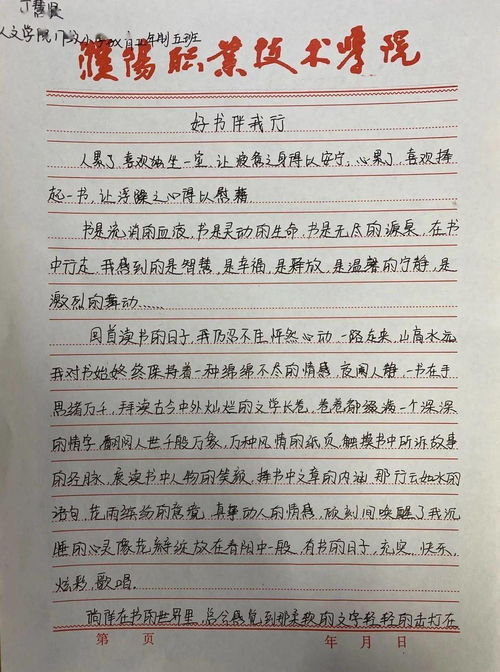 丁慧
人文学院
年制五班
濮阳职业技术学院
好书伴我行
人累了,喜欢独坐一室,让疲惫之身得以安宁,心累了,喜欢捧
起一书,让浮躁之心得以慰藉
书是流淌的血液,书是灵动的生命,书是无尽的源泉,在书
中行走,我感到的是智慧,是幸福,是释放,是温馨的宁静,是
激烈的舞动……
回首读书的日子,我仍忍不住怦然心动,一路走来,山高水远
我对书始终终保持着一种绵绵不尽的情感,夜阑人静,一书在手
思绪万千,拜读古今中外灿烂的文学长卷,卷卷都缀满一个深深
的情字,翻阅人世千般万象,万种风情的纸页,触摸书中所诉故事
的经脉,展读书中人物的笑貌,择书中文章的内涵,那行云如水的
语句,花雨缤纷的意境,真挚动人的情感,顷刻间唤醒了我沉
睡的心灵像花瓣绽放在春阳中一般,有书的日子,充实,快乐,
炫彩,歌唱.
徜徉在书的世界里,总会感觉到那柔软的文字轻轻的击打在
第 页 年 月 日